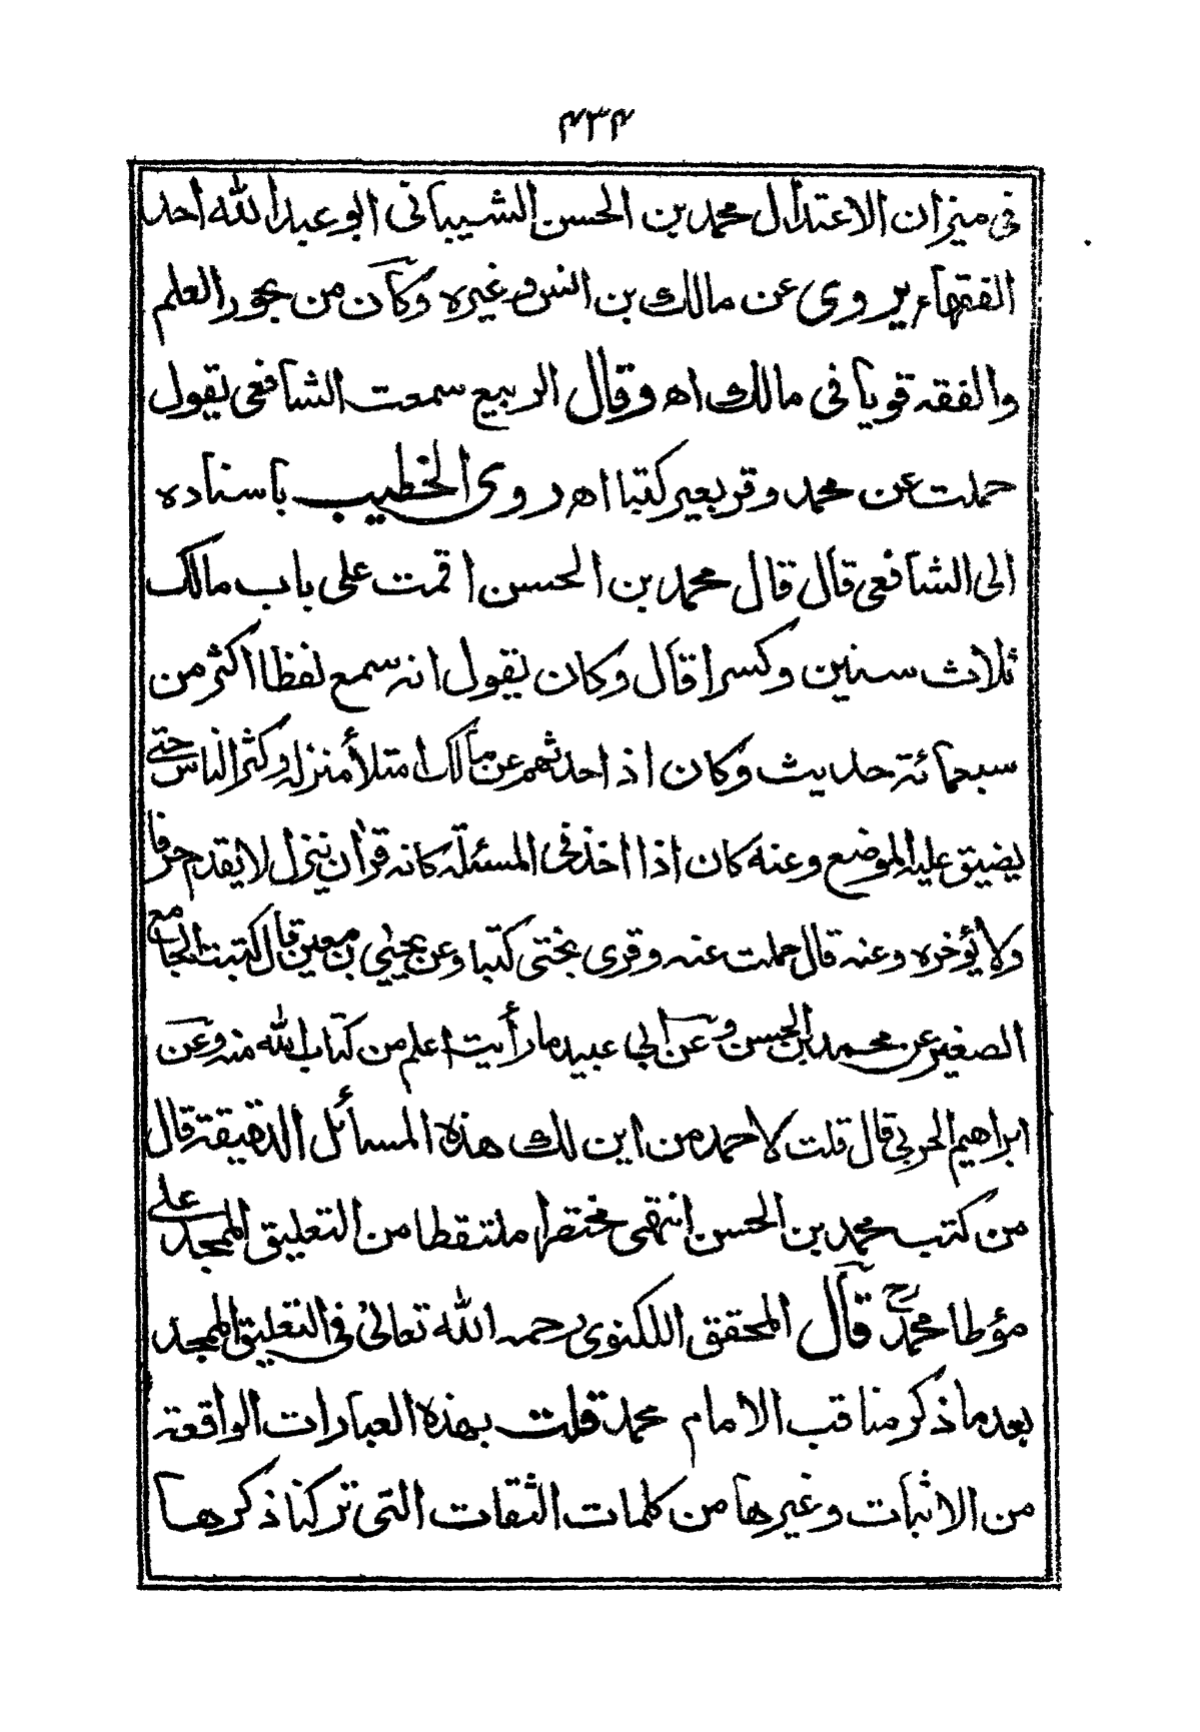 ۴۳۴
فی میزان الاعتدال محمد بن الحسن الشیبانی ابو عبد الله احد
الفقهاء یروی عن مالك بن انس وغیره وکان من بحور العلم
والفقه قویا فی مالك اھ وقال الربیع سمعت الشافعی یقول
حملت عن محمد وقر بعیر کتبا اھ روی الخطیب باسناده
الی الشافعی قال قال محمد بن الحسن اقمت علی باب مالك
ثلاث سنین وکسرا قال وکان یقول انه سمع لفظا اکثر من
سبعمائة حدیث وکان اذ احدثهم عن مالك امتلأ منزله وکثر الناس حتی
یضیق علیه الموضع وعنه کان اذا اخذ فی المسئلة کانه قرآن ینزل لا یقدم حرفا
ولا یؤخره وعنه قال حملت عنه وقری بختی کتبا وعن یحیی بن معین قال کتبت الجامع
الصغیر عن محمد بن الحسن وعن ابی عبید ما رأیت اعلم من کتاب الله منه وعن
ابراهیم الحربی قال قلت لاحمد من این لك هذه المسائل الدقیقة قال
من کتب محمد بن الحسن انتهی مختصرا ملتقطا من التعلیق الممجد علی
مؤطا محمدؒ قال المحقق اللکنوی رحمه الله تعالیٰ فی التعلیق الممجد
بعد ما ذکر مناقب الامام محمد قلت بهذه العبارات الواقعة
من الاثبات وغیرها من کلمات الثقات التی ترکنا ذکرها